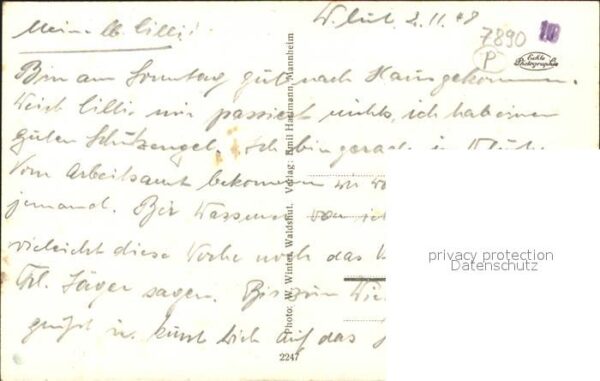 Meine lb. Cilli! W'hut 2.11.48
7890
P
10
Echte Photographie
Bin am Sonntag gut nach Haus gekommen.
Weist Cilli, mir passiert nichts, ich hab einen
guten Schutzengel. Ich bin gerade in
Vom Arbeitsamt bekommen wir
jemand. Bei
vieleicht diese Woche noch das
Frl. Jäger sagen. Bis zum
grüßt u. küsst Dich auf das
Photo: W. Winter, Waldshut. Verlag: Emil Hartmann, Mannheim
2247
privacy protection
Datenschutz